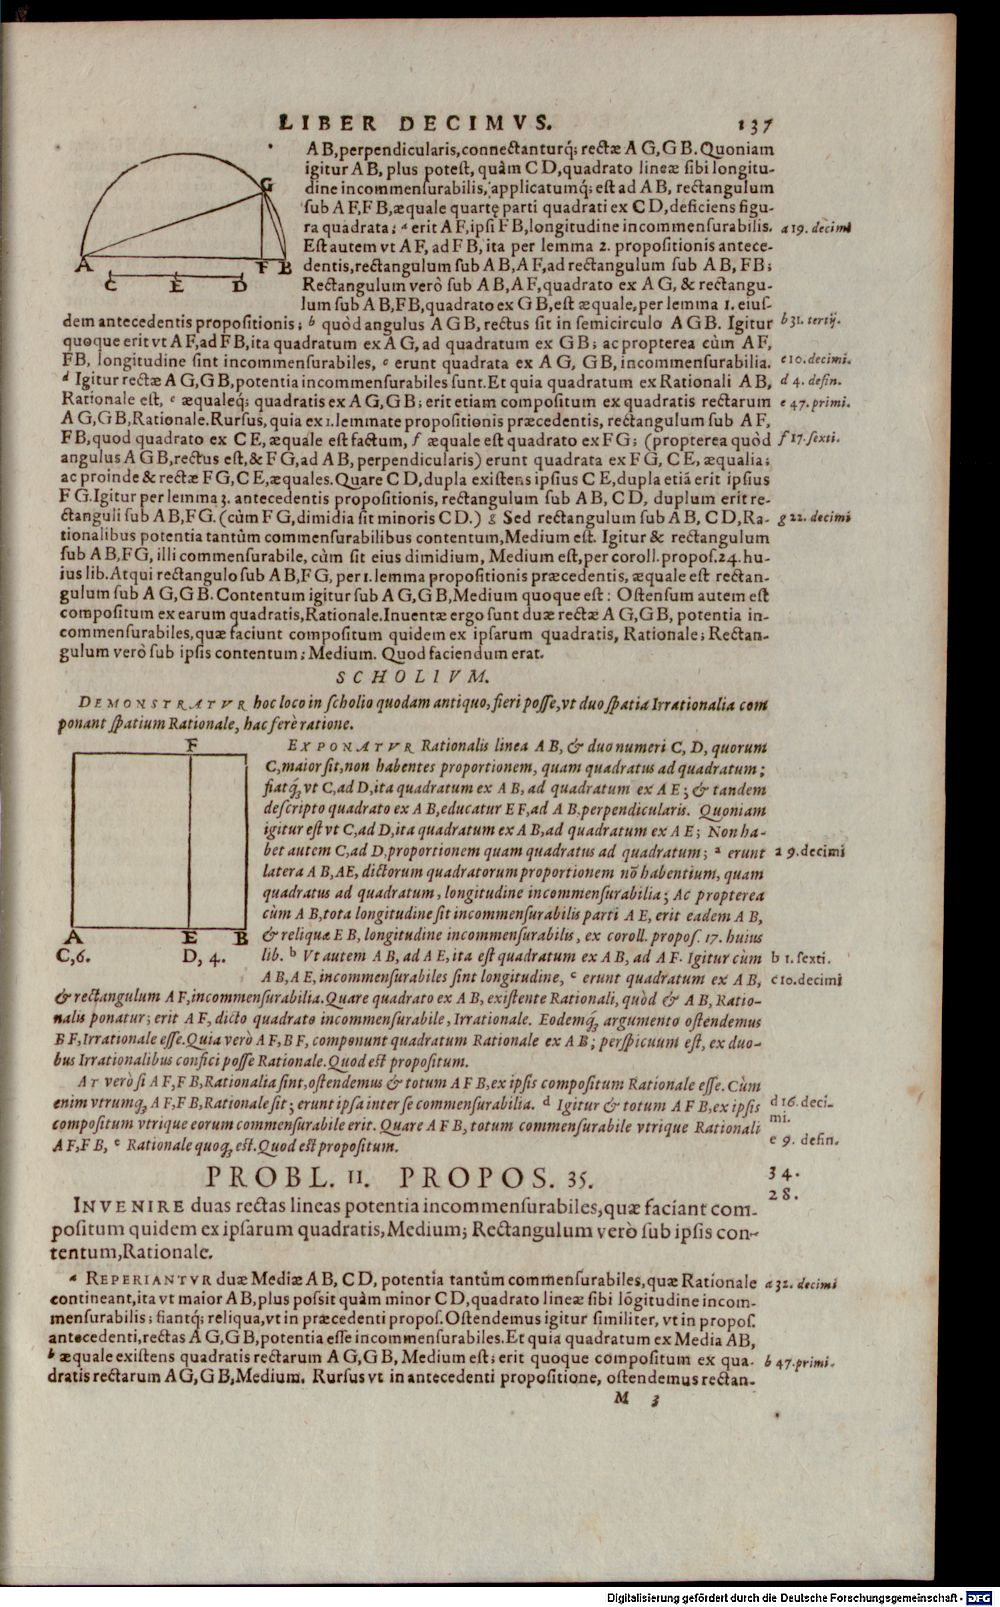 LIBER DECIMVS. 137
AB, perpendicularis, connectanturq́; rectæ AG, GB. Quoniam
igitur AB, plus potest, quàm CD, quadrato lineæ sibi longitu-
dine incommensurabilis, applicatumq́; est ad AB, rectangulum
sub AF, FB, æquale quartę parti quadrati ex CD, deficiens figu-
ra quadrata; a erit AF, ipsi FB, longitudine incommensurabilis. a 19. decimi
Est autem vt AF, ad FB, ita per lemma 2. propositionis antece-
dentis, rectangulum sub AB, AF, ad rectangulum sub AB, FB;
Rectangulum verò sub AB, AF, quadrato ex AG, & rectangu-
lum sub AB, FB, quadrato ex GB, est æquale, per lemma 1. eius-
G
A F B
C E D
dem antecedentis propositionis; b quòd angulus AGB, rectus sit in semicirculo AGB. Igitur b 31. tertij.
quoque erit vt AF, ad FB, ita quadratum ex AG, ad quadratum ex GB; ac propterea cùm AF,
FB, longitudine sint incommensurabiles, c erunt quadrata ex AG, GB, incommensurabilia. c 10. decimi.
d Igitur rectæ AG, GB, potentia incommensurabiles sunt. Et quia quadratum ex Rationali AB, d 4. defin.
Rationale est, e æqualeq́; quadratis ex AG, GB; erit etiam compositum ex quadratis rectarum e 47. primi.
AG, GB, Rationale. Rursus, quia ex 1. lemmate propositionis præcedentis, rectangulum sub AF,
FB, quod quadrato ex CE, æquale est factum, f æquale est quadrato ex FG; (propterea quòd f 17. sexti.
angulus AGB, rectus est, & FG, ad AB, perpendicularis) erunt quadrata ex FG, CE, æqualia;
ac proinde & rectæ FG, CE, æquales. Quare CD, dupla existens ipsius CE, dupla etiā erit ipsius
FG. Igitur per lemma 3. antecedentis propositionis, rectangulum sub AB, CD, duplum erit re-
ctanguli sub AB, FG. (cùm FG, dimidia sit minoris CD.) g Sed rectangulum sub AB, CD, Ra- g 22. decimi
tionalibus potentia tantùm commensurabilibus contentum, Medium est. Igitur & rectangulum
sub AB, FG, illi commensurabile, cùm sit eius dimidium, Medium est, per coroll. propos. 24. hu-
ius lib. Atqui rectangulo sub AB, FG, per 1. lemma propositionis præcedentis, æquale est rectan-
gulum sub AG, GB. Contentum igitur sub AG, GB, Medium quoque est: Ostensum autem est
compositum ex earum quadratis, Rationale. Inuentæ ergo sunt duæ rectæ AG, GB, potentia in-
commensurabiles, quæ faciunt compositum quidem ex ipsarum quadratis, Rationale; Rectan-
gulum verò sub ipsis contentum; Medium. Quod faciendum erat.
SCHOLIVM.
DEMONSTRATVR hoc loco in scholio quodam antiquo, fieri posse, vt duo spatia Irrationalia com
ponant spatium Rationale, hac ferè ratione.
EXPONATVR Rationalis linea AB, & duo numeri C, D, quorum
C, maior sit, non habentes proportionem, quam quadratus ad quadratum;
fiatq́, vt C, ad D, ita quadratum ex AB, ad quadratum ex AE; & tandem
descripto quadrato ex AB, educatur EF, ad AB, perpendicularis. Quoniam
igitur est vt C, ad D, ita quadratum ex AB, ad quadratum ex AE; Non ha-
bet autem C, ad D, proportionem quam quadratus ad quadratum; a erunt a 9. decimi
latera AB, AE, dictorum quadratorum proportionem nō habentium, quam
quadratus ad quadratum, longitudine incommensurabilia; Ac propterea
cùm AB, tota longitudine sit incommensurabilis parti AE, erit eadem AB,
& reliquæ EB, longitudine incommensurabilis, ex coroll. propos. 17. huius
lib. b Vt autem AB, ad AE, ita est quadratum ex AB, ad AF. Igitur cùm b 1. sexti.
AB, AE, incommensurabiles sint longitudine, c erunt quadratum ex AB, c 10. decimi
F
A E B
C, 6. D, 4.
& rectangulum AF, incommensurabilia. Quare quadrato ex AB, existente Rationali, quòd & AB, Ratio-
nalis ponatur; erit AF, dicto quadrato incommensurabile, Irrationale. Eodemq́, argumento ostendemus
BF, Irrationale esse. Quia verò AF, BF, componunt quadratum Rationale ex AB; perspicuum est, ex duo-
bus Irrationalibus confici posse Rationale. Quod est propositum.
AT verò si AF, FB, Rationalia sint, ostendemus & totum AFB, ex ipsis compositum Rationale esse. Cùm
enim vtrumq, AF, FB, Rationale sit; erunt ipsa inter se commensurabilia. d Igitur & totum AFB, ex ipsis d 16. deci-
compositum vtrique eorum commensurabile erit. Quare AFB, totum commensurabile vtrique Rationali mi.
AF, FB, e Rationale quoq, est. Quod est propositum. e 9. defin.
PROBL. 11. PROPOS. 35. 34.
28.
INVENIRE duas rectas lineas potentia incommensurabiles, quæ faciant com-
positum quidem ex ipsarum quadratis, Medium; Rectangulum verò sub ipsis con-
tentum, Rationale.
a REPERIANTVR duæ Mediæ AB, CD, potentia tantùm commensurabiles, quæ Rationale a 32. decimi
contineant, ita vt maior AB, plus possit quàm minor CD, quadrato lineæ sibi lōgitudine incom-
mensurabilis; fiantq́; reliqua, vt in præcedenti propos. Ostendemus igitur similiter, vt in propos.
antecedenti, rectas AG, GB, potentia esse incommensurabiles. Et quia quadratum ex Media AB,
b æquale existens quadratis rectarum AG, GB, Medium est; erit quoque compositum ex qua- b 47. primi.
dratis rectarum AG, GB, Medium. Rursus vt in antecedenti propositione, ostendemus rectan-
M 3
Digitalisierung gefördert durch die Deutsche Forschungsgemeinschaft - DFG